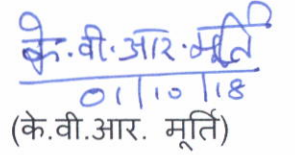 के.वी.आर.मूर्ति
01/10/18
(के.वी.आर. मूर्ति)